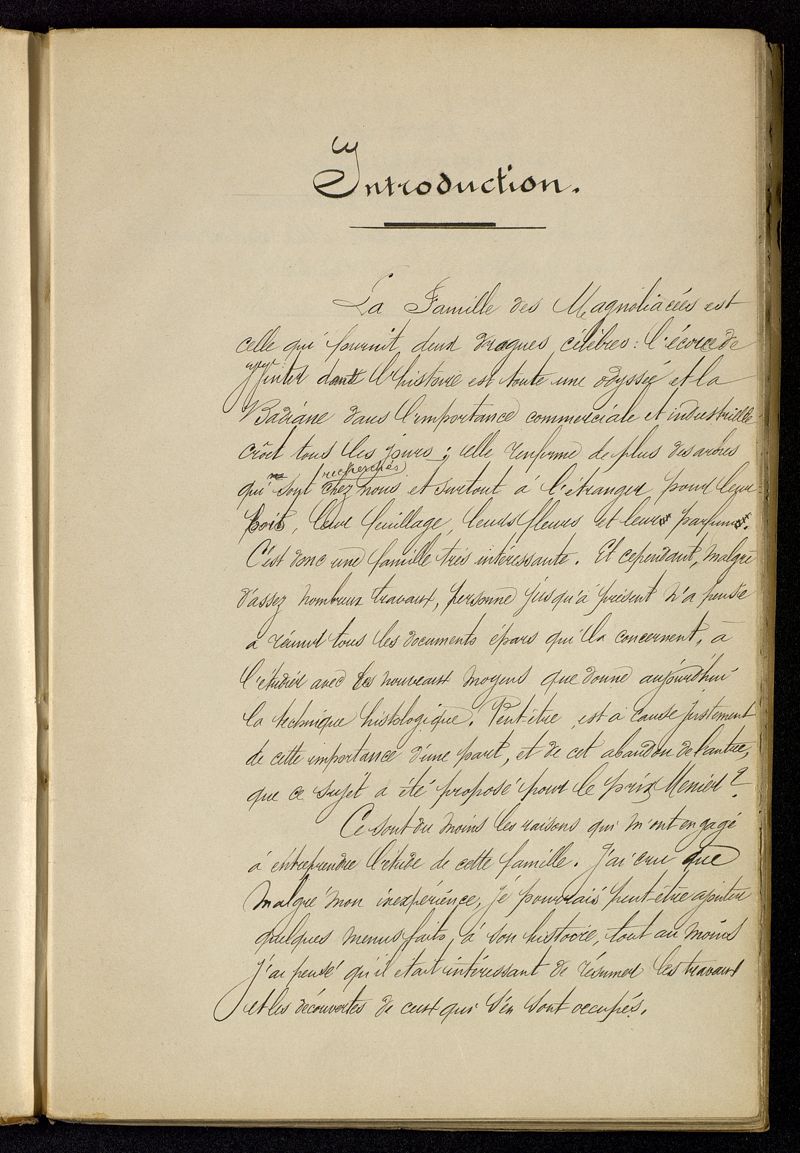 Introduction.
La Famille des Magnoliacées est
celle qui fournit deux drogues célèbres : l'écorce de
Winter dont l'histoire est toute une odyssée et la
Badiane dans l'importance commerciale et industrielle
croît tous les jours ; elle renferme de plus des arbres
recherchés
qui sont chez nous et surtout à l'étranger pour leur
bois, leur feuillage, leurs fleurs et leur parfum.
C'est donc une famille très intéressante. Et cependant, malgré
d'assez nombreux travaux, personne jusqu'à présent n'a pensé
à réunir tous les documents épars qui la concernent, à
l'étudier avec les nouveaux moyens que donne aujourd'hui
la technique histologique. Peut-être, est-à cause justement
de cette importance d'une part, et de cet abandon de l'autre,
que ce sujet a été proposé pour le prix Menier ?
Ce sont du moins les raisons qui m'ont engagé
à entreprendre l'étude de cette famille. J'ai cru que
malgré mon inexpérience, je pourrais peut-être ajouter
quelques menus faits, à son histoire, tout au moins
j'ai pensé qu'il était intéressant de résumer les travaux
et les découvertes de ceux qui s'en sont occupés.